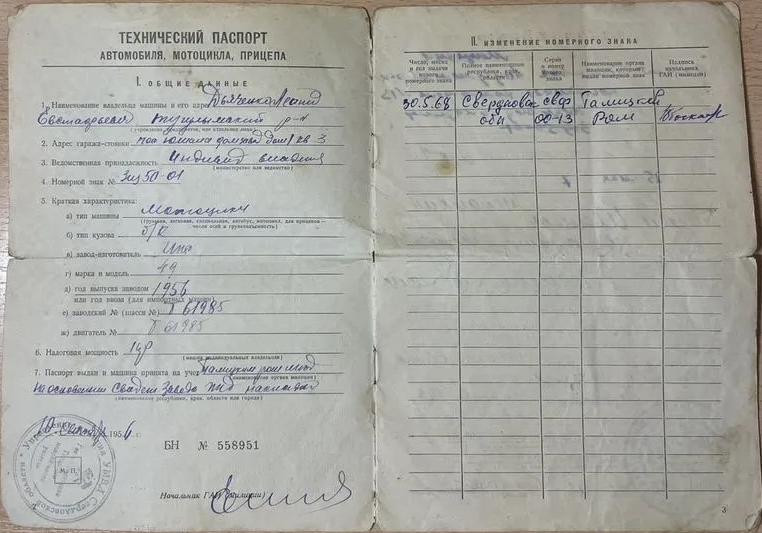 ТЕХНИЧЕСКИЙ ПАСПОРТ
АВТОМОБИЛЯ, МОТОЦИКЛА, ПРИЦЕПА
I. ОБЩИЕ ДАННЫЕ
1. Наименование владельца машины и его адрес Дьяченко Леонид
р-н
(учреждения предприятия, или отдельных лиц)
2. Адрес гаража-стоянки дом 1 кв 3
3. Ведомственная принадлежность Индивид владения
(министерство или ведомство)
4. Номерной знак № 50-01
5. Краткая характеристика:
а) тип машины Мотоцикл
(грузовая, легковая, специальная, автобус, мотоцикл, для прицепов —
число осей и грузоподъемность)
б) тип кузова б/к
в) завод-изготовитель Иж
г) марка и модель 49
д) год выпуска заводом 1956
или год ввоза (для импортных машин)
е) заводской № (шасси №) Т 61985
ж) двигатель № Т 61985
6. Налоговая мощность
(машин индивидуальных владельцев)
7. Паспорт выдан и машина принята на учет Талицким
(наименование органа милиции)
На основании Свидет завода
(наименование республики, края, области или города)
10 1956 г.
М. П.
БН № 558951
Начальник ГАИ (милиции)
II. ИЗМЕНЕНИЕ НОМЕРНОГО ЗНАКА
Число, месяц и год выдачи нового номерного знака
Полное наименование республики, края, области
Серия и номер нового знака
Наименование органа милиции, который выдал номерной знак
Подпись начальника ГАИ (милиции)
30.5.68 Свердловск свф Талицкий
обл 00-13 Ром
3